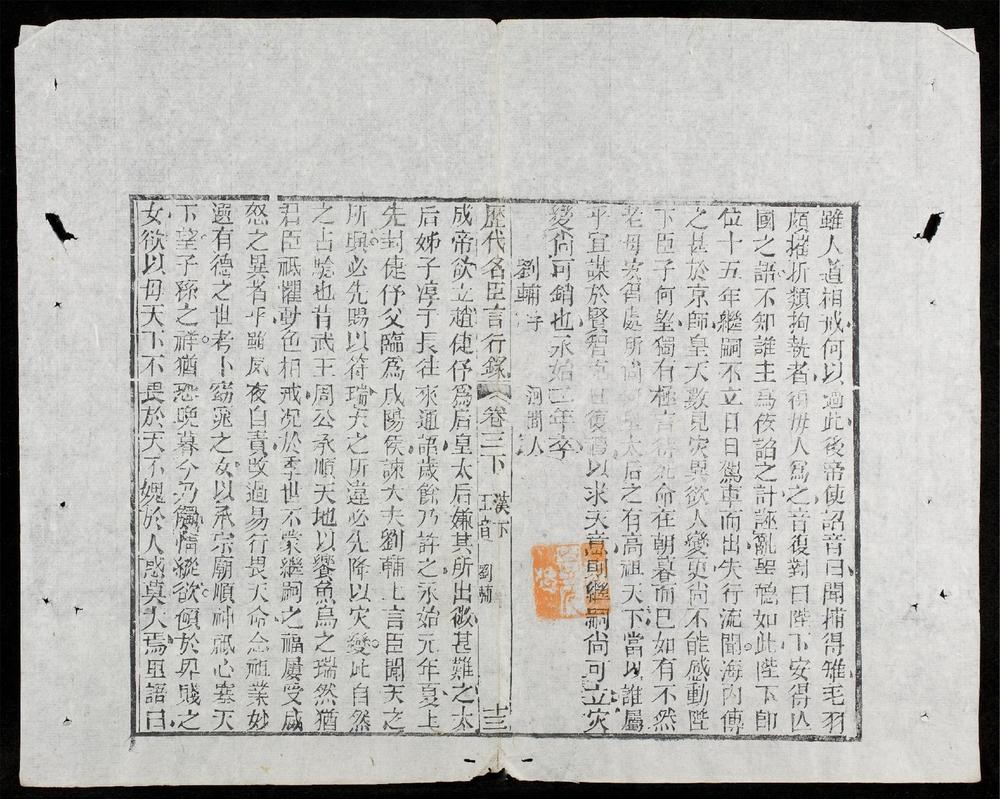 雖人道相戒何以過此後帝使詔音曰聞捕得雉毛羽
頗摧折類拘執者得毋人爲之音復對曰陛下安得亾
國之語不知誰主爲佞諂之計誣亂聖聽如此陛下卽
位十五年繼嗣不立日日駕車而出失行流聞海內傳
之甚於京師皇天數見灾異欲人變更尚不能感動陛
下臣子何望獨有極言待死命在朝暮而已如有不然
老母安得處所尚何皇太后之有高祖天下當以誰屬
乎宜謀於賢智克己復禮以求天意則繼嗣尚可立灾
變尚可銷也永始二年卒
劉輔 河間人
歷代名臣言行錄 卷三下 漢下 王音 劉輔 十三
成帝欲立趙倢伃爲后皇太后嫌其所出微甚難之太
后姊子淳于長往來通語歲餘乃許之永始元年夏上
先封倢伃父臨爲成陽侯諫大夫劉輔上言臣聞天之
所興必先賜以符瑞天之所違必先降以灾變此自然
之占驗也昔武王周公承順天地以饗魚烏之瑞然猶
君臣祗懼動色相戒况於季世不蒙繼嗣之福屢受威
怒之異者乎雖夙夜自責改過易行畏天命念祖業妙
選有德之世考卜窈窕之女以承宗廟順神祇心塞天
下望子孫之祥猶恐晚暮今乃觸情縱欲傾於卑賤之
女欲以母天下不畏於天不媿於人惑莫大焉里語曰